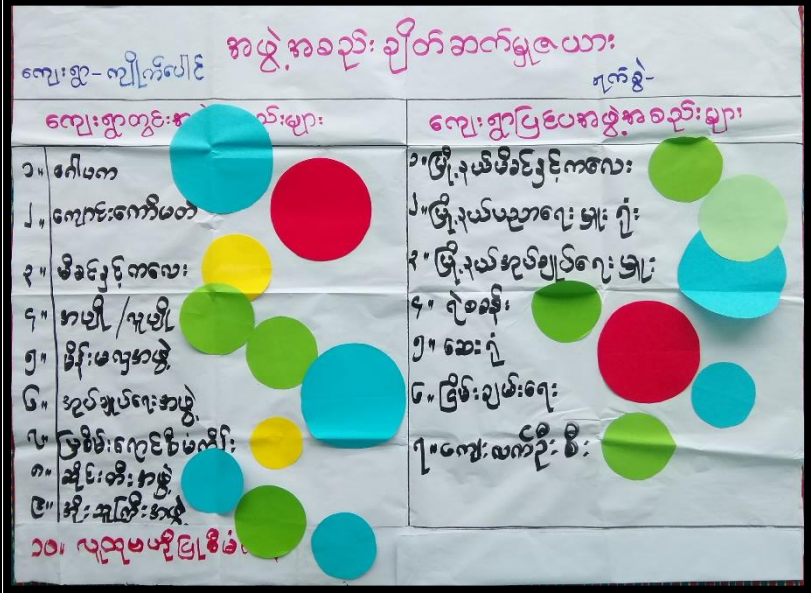 အဖွဲ့အစည်းချိတ်ဆက်မှုဇယား
ကျေးရွာ-ကျိုက်ပေါင်
ရက်စွဲ-
ကျေးရွာတွင်း ည်းများ
၁။ ဂေါပက
၂။ ကျောင်းကော်မတီ
၃။ မိခင်နှင့်ကလေး
၄။ အမျို/လူမျို
၅။ မိန်းမလှအဖွဲ့
၆။ အုပ်ချုပ်ရေးအဖွဲ့
၇။
၈။ ဆိုင်းတီးအဖွဲ့
၉။ အိုးသူကြီးအဖွဲ့
၁၀။ လူထုဗဟိုပြုစီမံ
ကျေးရွာပြင်ပအဖွဲ့အစည်းများ
၁။ မြို့နယ်မိခင်နှင့်ကလေး
၂။ မြို့နယ်ပညာရေးမှူးရုံး
၃။ မြို့နယ်အုပ်ချုပ်ရေးမှူး
၄။ ရဲစခန်း
၅။ ဆေးရုံ
၆။ ငြိမ်းချမ်းရေး
၇။ ကျေးလက်ဦးစီး